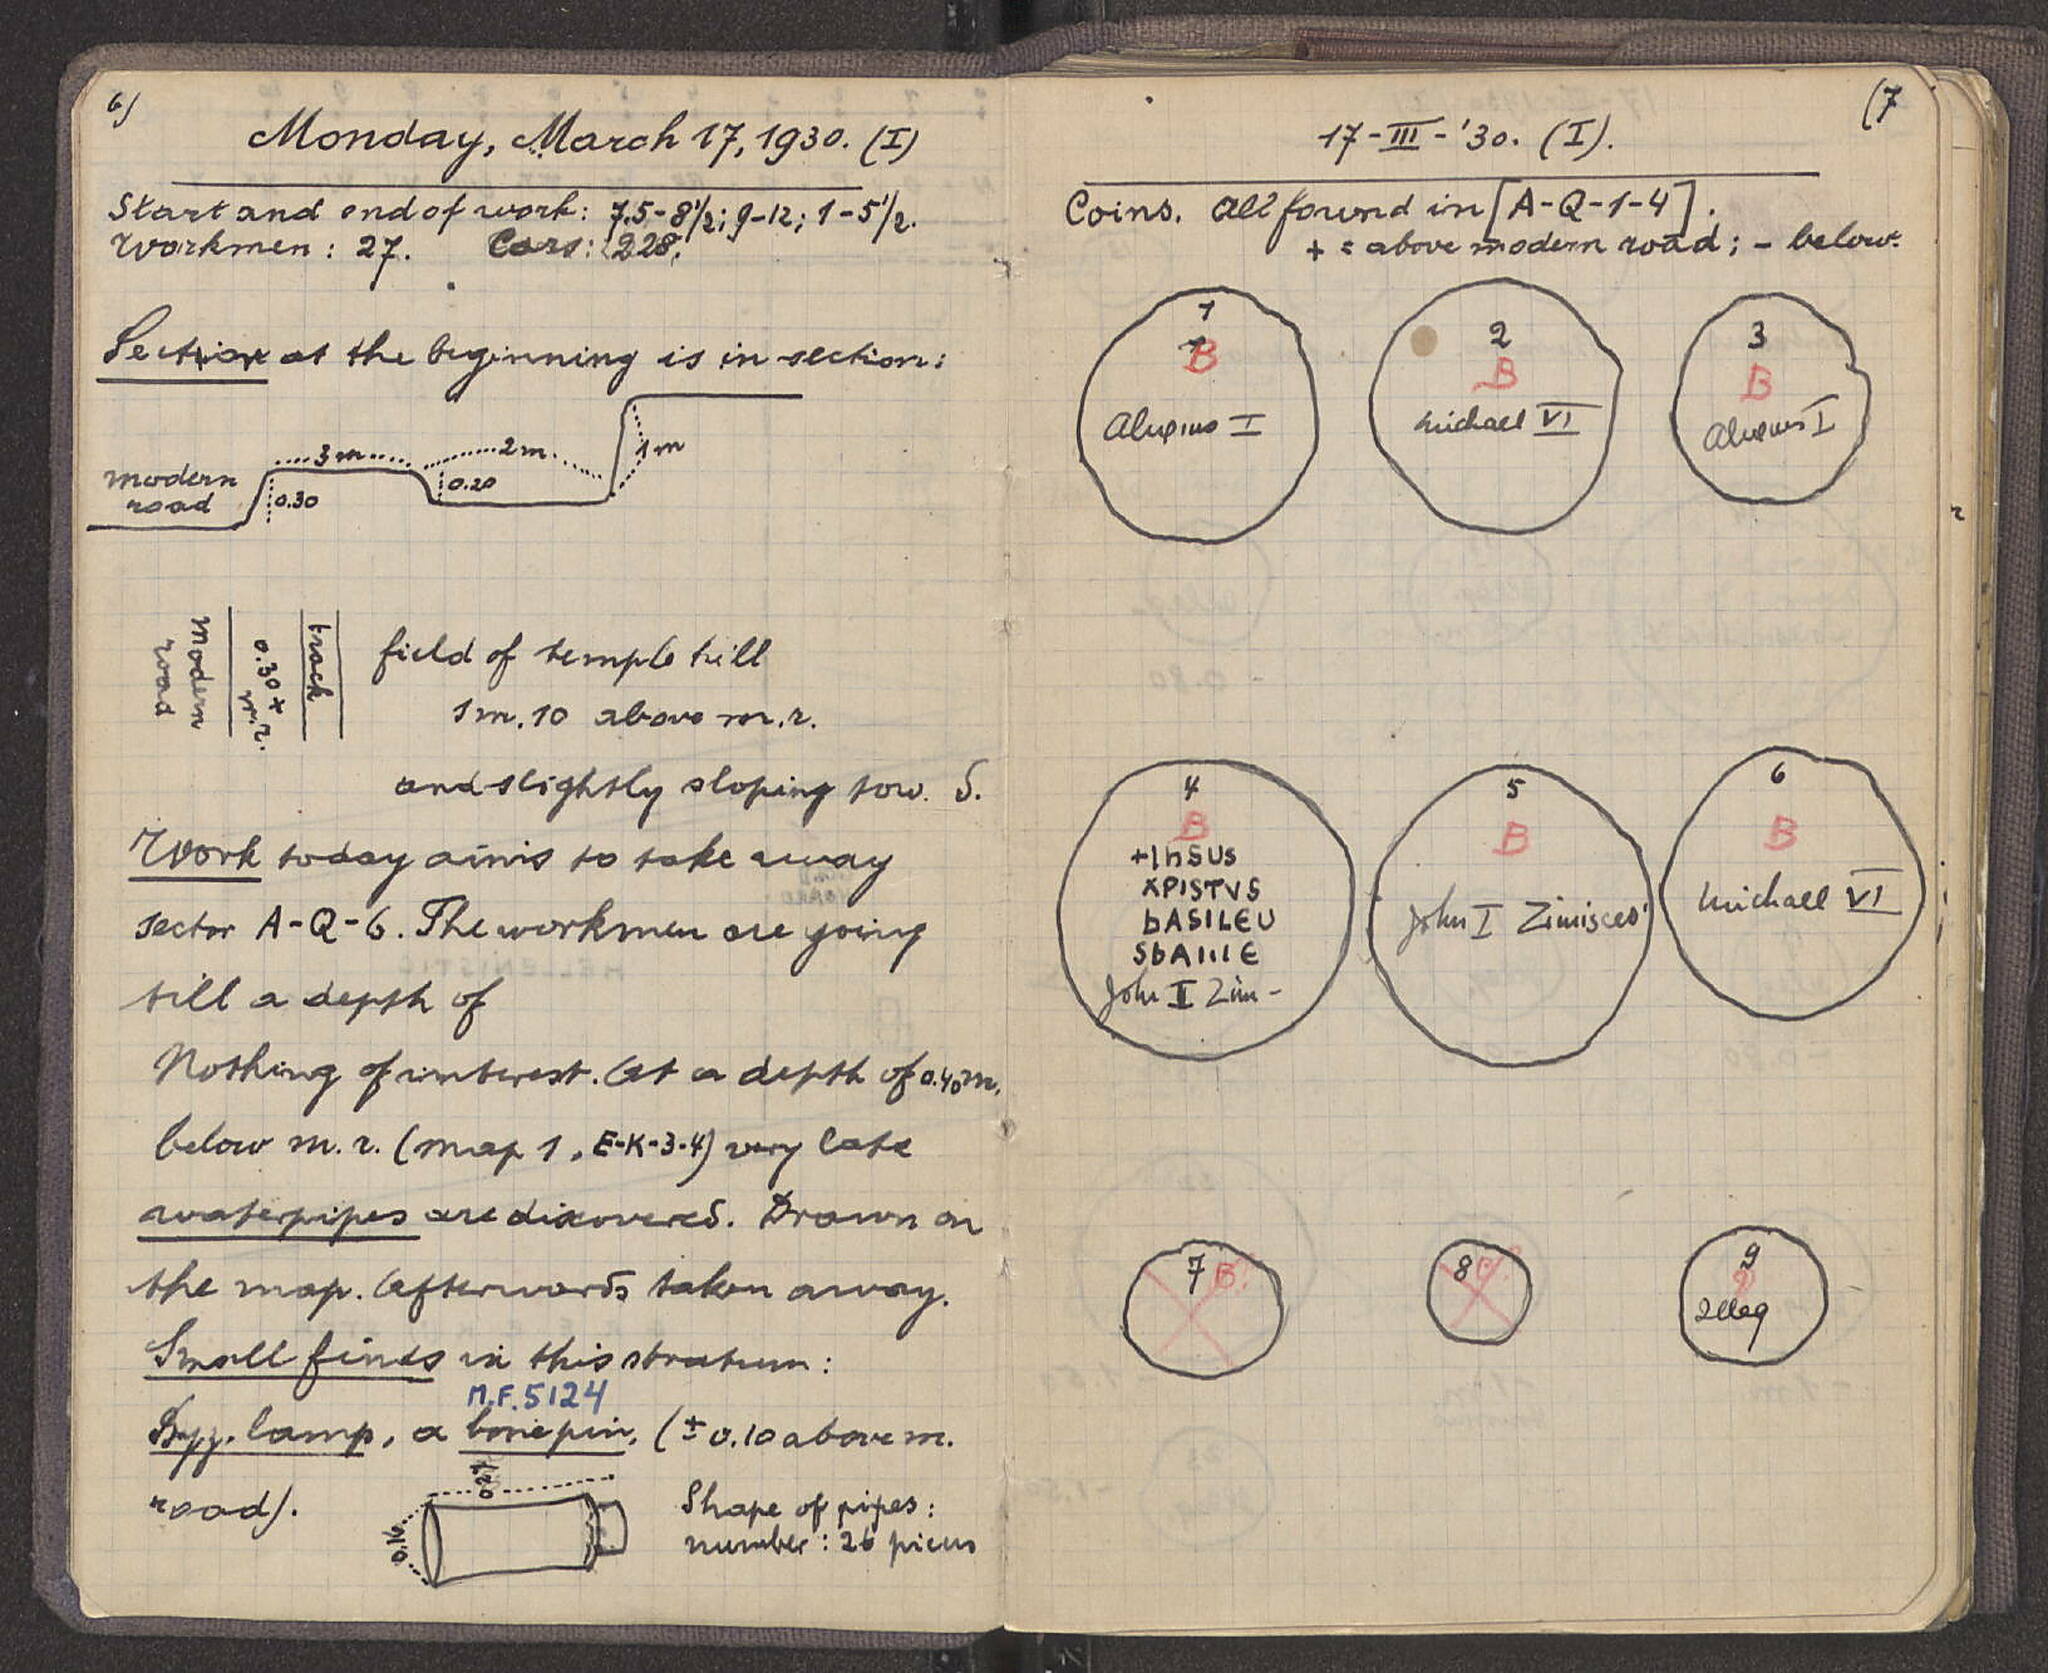 6)
Monday, March 17, 1930. (I)
Start and end of work: 7.5-8½; 9-12; 1-5½.
Workmen: 27. Cars: 228.
Section at the beginning is in section:
3m 2m 1m
modern road
0.30
0.20
modern road
0.30 + m.r.
track
field of temple hill
1m.10 above m.r.
and slightly sloping tow. S.
Work today aims to take away
sector A-Q-6. The workmen are going
till a depth of
Nothing of interest. At a depth of 0.40 m.
below m.r. (map 1, E-K-3-4) very late
waterpipes are discovered. Drawn on
the map. Afterwards taken away.
Small finds in this stratum:
M.F. 5124
Byz. lamp, a bone pin, (± 0.10 above m.
road).
0.27
0.16
Shape of pipes:
number: 26 pieces
(7
17-III-'30. (I).
Coins. All found in [A-Q-1-4].
+ = above modern road; - below.
1
B
Alexius I
2
B
Michael VI
3
B
Alexius I
4
B
+IhSUS
XPISTVS
bASILEU
SbAIIIE
John I Zim-
5
B
John I Zimisces
6
B
Michael VI
7 B?
8
9
illeg